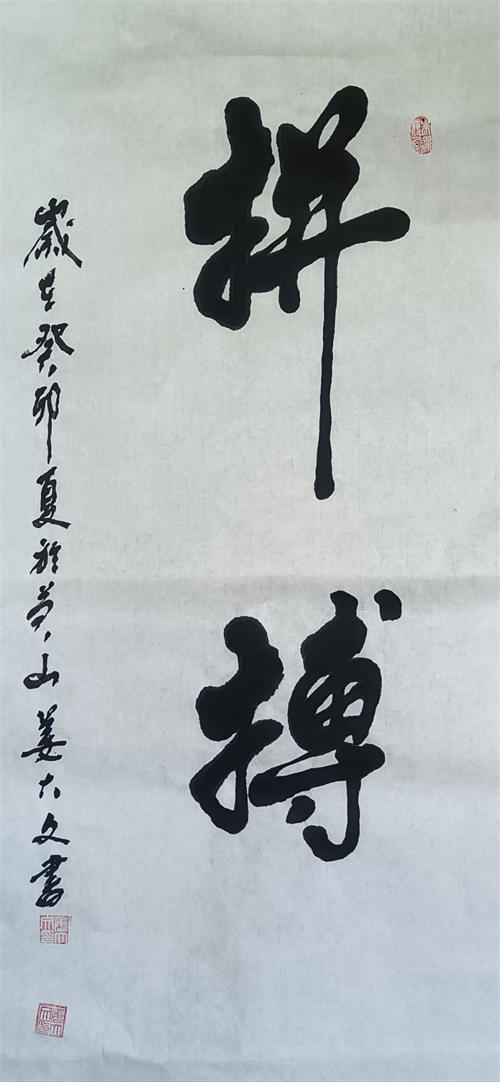 拼搏
歲在癸卯夏於萝山姜大文書